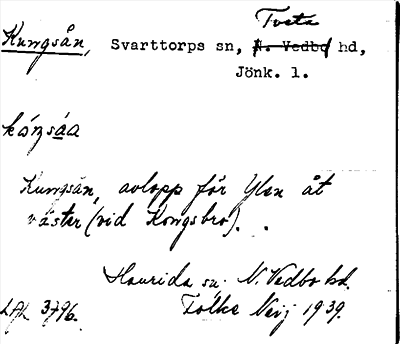 Tveta
Kungsån, Svarttorps sn, N. Vedbo hd,
Jönk. l.
kóŋsa̲a
Kungsån, avlopp för Ylen åt
väster (vid Kongsbro).
Haurida sn. N. Vedbo hd.
LAL 3796. Folke Neij 1939.